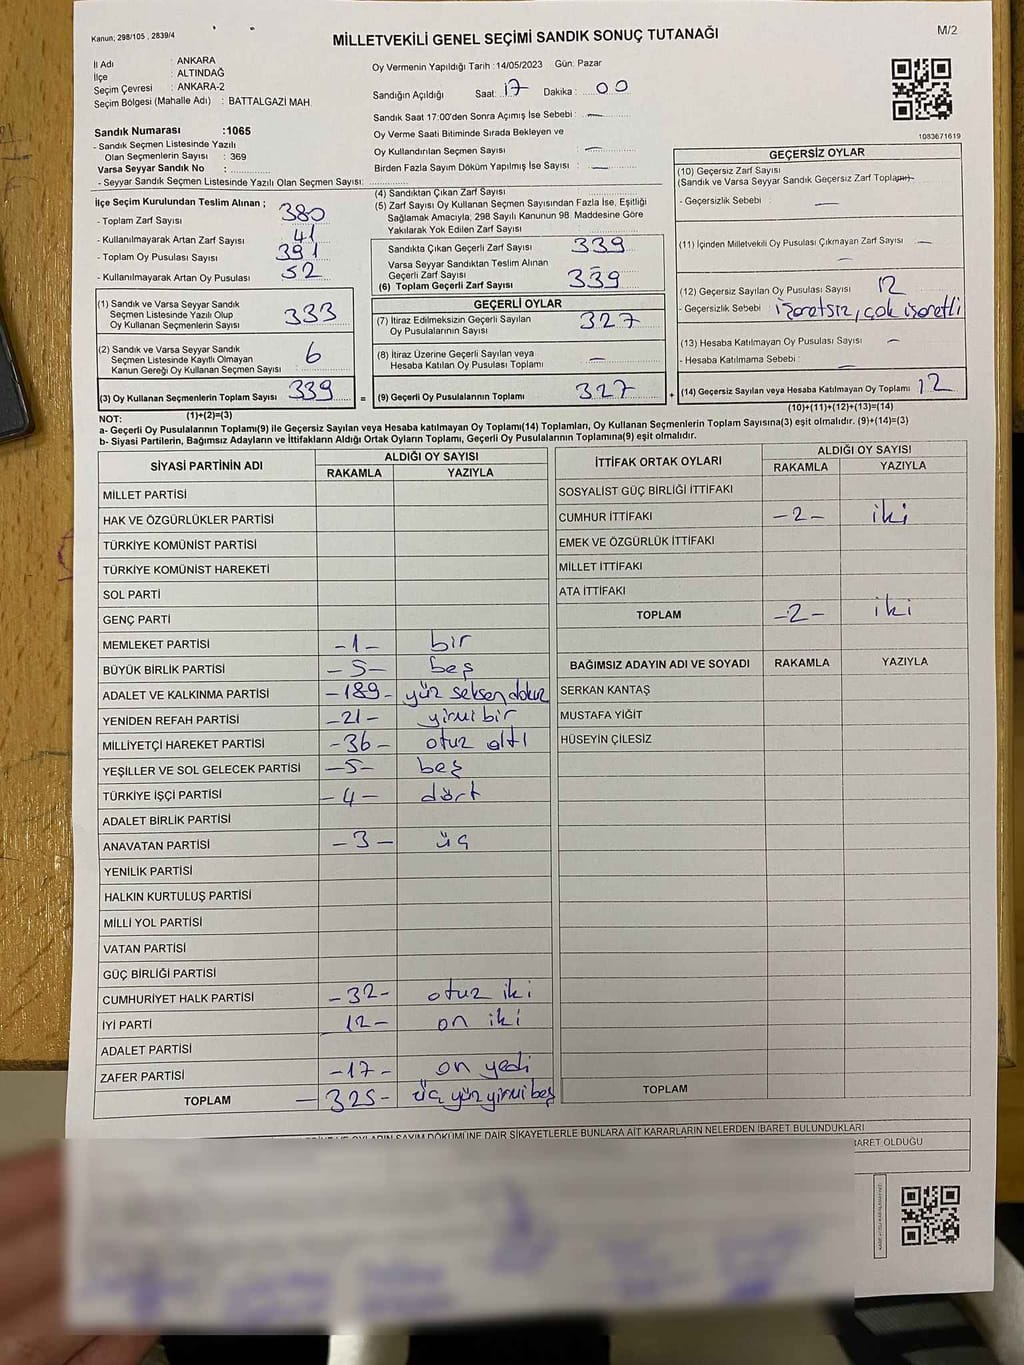 Kanun; 298/105 , 2839/4
MİLLETVEKİLİ GENEL SEÇİMİ SANDIK SONUÇ TUTANAĞI
M/2
İl Adı : ANKARA
İlçe : ALTINDAĞ
Seçim Çevresi : ANKARA-2
Seçim Bölgesi (Mahalle Adı) : BATTALGAZİ MAH.
Sandık Numarası :1065
- Sandık Seçmen Listesinde Yazılı
Olan Seçmenlerin Sayısı : 369
Varsa Seyyar Sandık No :
- Seyyar Sandık Seçmen Listesinde Yazılı Olan Seçmen Sayısı:
İlçe Seçim Kurulundan Teslim Alınan ;
- Toplam Zarf Sayısı 380
- Kullanılmayarak Artan Zarf Sayısı 41
- Toplam Oy Pusulası Sayısı 391
- Kullanılmayarak Artan Oy Pusulası 52
(1) Sandık ve Varsa Seyyar Sandık
Seçmen Listesinde Yazılı Olup
Oy Kullanan Seçmenlerin Sayısı 333
(2) Sandık ve Varsa Seyyar Sandık
Seçmen Listesinde Kayıtlı Olmayan
Kanun Gereği Oy Kullanan Seçmen Sayısı 6
(3) Oy Kullanan Seçmenlerin Toplam Sayısı 339 =
(1)+(2)=(3)
Oy Vermenin Yapıldığı Tarih :14/05/2023 Gün: Pazar
Sandığın Açıldığı Saat: 17 Dakika : 00
Sandık Saat 17:00'den Sonra Açımış İse Sebebi : —
Oy Verme Saati Bitiminde Sırada Bekleyen ve
Oy Kullandırılan Seçmen Sayısı : —
Birden Fazla Sayım Döküm Yapılmış İse Sayısı : —
(4) Sandıktan Çıkan Zarf Sayısı
(5) Zarf Sayısı Oy Kullanan Seçmen Sayısından Fazla İse, Eşitliği
Sağlamak Amacıyla; 298 Sayılı Kanunun 98. Maddesine Göre
Yakılarak Yok Edilen Zarf Sayısı
Sandıkta Çıkan Geçerli Zarf Sayısı 339
Varsa Seyyar Sandıktan Teslim Alınan
Geçerli Zarf Sayısı —
(6) Toplam Geçerli Zarf Sayısı 339
GEÇERLİ OYLAR
(7) İtiraz Edilmeksizin Geçerli Sayılan
Oy Pusulalarının Sayısı 327
(8) İtiraz Üzerine Geçerli Sayılan veya
Hesaba Katılan Oy Pusulası Toplamı —
(9) Geçerli Oy Pusulalarının Toplamı 327 +
1083671619
GEÇERSİZ OYLAR
(10) Geçersiz Zarf Sayısı
(Sandık ve Varsa Seyyar Sandık Geçersiz Zarf Toplamı)
- Geçersizlik Sebebi : —
(11) İçinden Milletvekili Oy Pusulası Çıkmayan Zarf Sayısı —
(12) Geçersiz Sayılan Oy Pusulası Sayısı 12
- Geçersizlik Sebebi : işaretsiz, çok işaretli
(13) Hesaba Katılmayan Oy Pusulası Sayısı —
- Hesaba Katılmama Sebebi : —
(14) Geçersiz Sayılan veya Hesaba Katılmayan Oy Toplamı 12
(10)+(11)+(12)+(13)=(14)
NOT:
a- Geçerli Oy Pusulalarının Toplamı(9) ile Geçersiz Sayılan veya Hesaba katılmayan Oy Toplamı(14) Toplamları, Oy Kullanan Seçmenlerin Toplam Sayısına(3) eşit olmalıdır. (9)+(14)=(3)
b- Siyasi Partilerin, Bağımsız Adayların ve İttifakların Aldığı Ortak Oyların Toplamı, Geçerli Oy Pusulalarının Toplamına(9) eşit olmalıdır.
SİYASİ PARTİNİN ADI ALDIĞI OY SAYISI
RAKAMLA YAZIYLA
MİLLET PARTİSİ
HAK VE ÖZGÜRLÜKLER PARTİSİ
TÜRKİYE KOMÜNİST PARTİSİ
TÜRKİYE KOMÜNİST HAREKETİ
SOL PARTİ
GENÇ PARTİ
MEMLEKET PARTİSİ -1- bir
BÜYÜK BİRLİK PARTİSİ -5- beş
ADALET VE KALKINMA PARTİSİ -189- yüz seksen dokuz
YENİDEN REFAH PARTİSİ -21- yirmi bir
MİLLİYETÇİ HAREKET PARTİSİ -36- otuz altı
YEŞİLLER VE SOL GELECEK PARTİSİ -5- beş
TÜRKİYE İŞÇİ PARTİSİ -4- dört
ADALET BİRLİK PARTİSİ
ANAVATAN PARTİSİ -3- üç
YENİLİK PARTİSİ
HALKIN KURTULUŞ PARTİSİ
MİLLİ YOL PARTİSİ
VATAN PARTİSİ
GÜÇ BİRLİĞİ PARTİSİ
CUMHURİYET HALK PARTİSİ -32- otuz iki
İYİ PARTİ 12- on iki
ADALET PARTİSİ
ZAFER PARTİSİ -17- on yedi
TOPLAM -325- üç yüz yirmi beş
İTTİFAK ORTAK OYLARI ALDIĞI OY SAYISI
RAKAMLA YAZIYLA
SOSYALİST GÜÇ BİRLİĞİ İTTİFAKI
CUMHUR İTTİFAKI -2- iki
EMEK VE ÖZGÜRLÜK İTTİFAKI
MİLLET İTTİFAKI
ATA İTTİFAKI
TOPLAM -2- iki
BAĞIMSIZ ADAYIN ADI VE SOYADI RAKAMLA YAZIYLA
SERKAN KANTAŞ
MUSTAFA YİĞİT
HÜSEYİN ÇİLESİZ
TOPLAM
OYLARIN SAYIM DÖKÜMÜNE DAİR ŞİKAYETLERLE BUNLARA AİT KARARLARIN NELERDEN İBARET BULUNDUKLARI
İBARET OLDUĞU